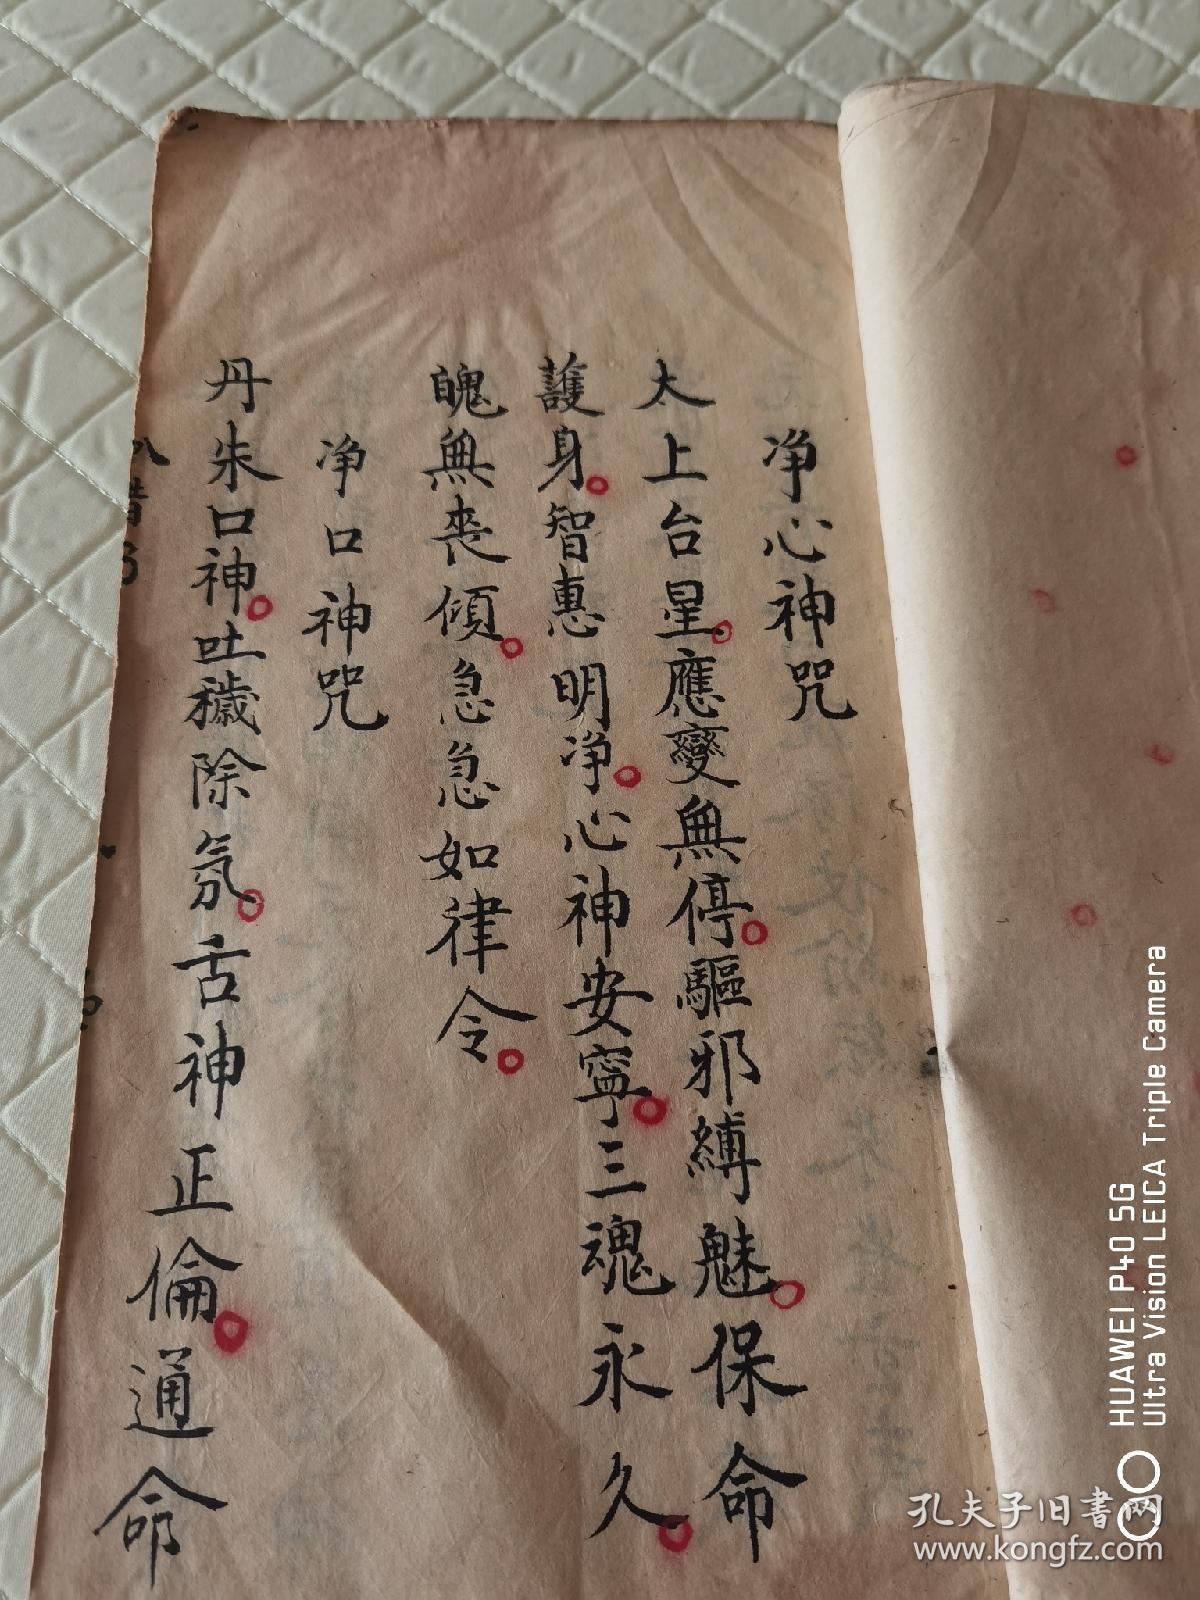 净心神咒
太上台星應變無停驅邪縛魅保命
護身智惠明净心神安寧三魂永久
魄無喪傾急急如律令
净口神咒
丹朱口神吐穢除氛舌神正倫通命
HUAWEI P40 5G
Ultra Vision LEICA Triple Camera
孔夫子旧书网
www.kongfz.com